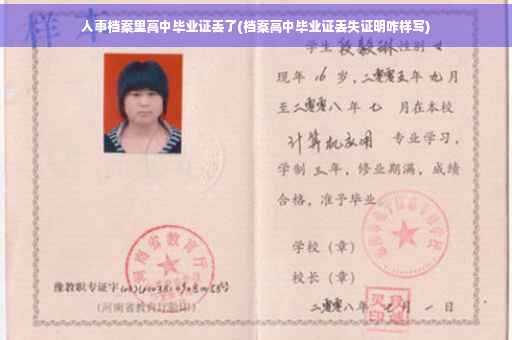 人事档案里高中毕业证丢了(档案高中毕业证丢失证明咋样写)
样本
学生 段毅琳 性别 女
现年 16 岁,二零零五年 九月
至二零零八年 七 月在本校
计算机应用 专业学习,
学制 三 年,修业期满,成绩
合格,准予毕业
学校(章)
校长(章)
二零零八年 七 月 一 日
河南省教育厅
豫教职专证字
(河南省教育厅验印)